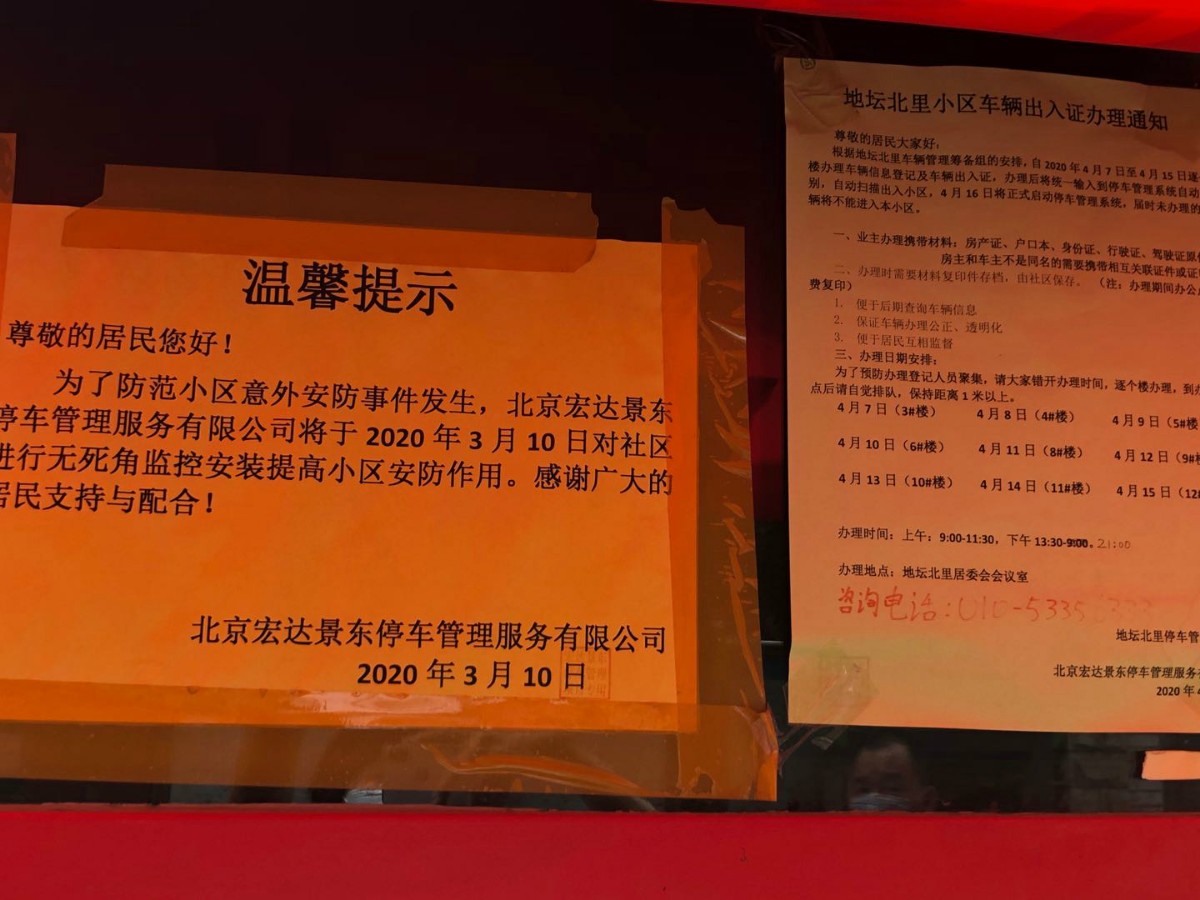 温馨提示
尊敬的居民您好！
为了防范小区意外安防事件发生，北京宏达景东
停车管理服务有限公司将于 2020 年 3 月 10 日对社区
进行无死角监控安装提高小区安防作用。感谢广大的
居民支持与配合！
北京宏达景东停车管理服务有限公司
2020 年 3 月 10 日
地坛北里小区车辆出入证办理通知
尊敬的居民大家好：
根据地坛北里车辆管理筹备组的安排，自 2020 年 4 月 7 日至 4 月 15 日逐
楼办理车辆信息登记及车辆出入证，办理后将统一输入到停车管理系统自动
别，自动扫描出入小区，4 月 16 日将正式启动停车管理系统，届时未办理的
辆将不能进入本小区。
一、业主办理携带材料：房产证、户口本、身份证、行驶证、驾驶证原
房主和车主不是同名的需要携带相互关联证件或证
二、办理时需要材料复印件存档，由社区保存。（注：办理期间办公
费复印）
1. 便于后期查询车辆信息
2. 保证车辆办理公正、透明化
3. 便于居民互相监督
三、办理日期安排：
为了预防办理登记人员聚集，请大家错开办理时间，逐个楼办理，到
点后请自觉排队，保持距离 1 米以上。
4 月 7 日（3#楼） 4 月 8 日（4#楼） 4 月 9 日（5#楼
4 月 10 日（6#楼） 4 月 11 日（8#楼） 4 月 12 日（9#
4 月 13 日（10#楼） 4 月 14 日（11#楼） 4 月 15 日（12
办理时间：上午：9:00-11:30，下午 13:30-21:00
办理地点：地坛北里居委会会议室
咨询电话：010-5335
地坛北里停车管
北京宏达景东停车管理服务
2020 年